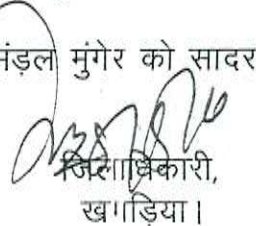 मंडल मुंगेर को सादर
जिलाधिकारी,
खगड़िया।